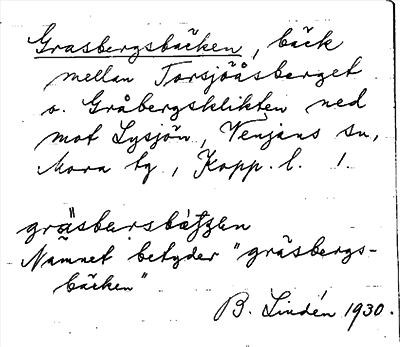 Grasbergsbäcken, bäck
mellan Torsjöåsberget
o. Gråbergsklikten ned
mot Lysjön, Venjans sn,
Mora tg, Kopp. l. 1.
Namnet betyder "gräsbergs-
bäcken"
B. Lindén 1930.